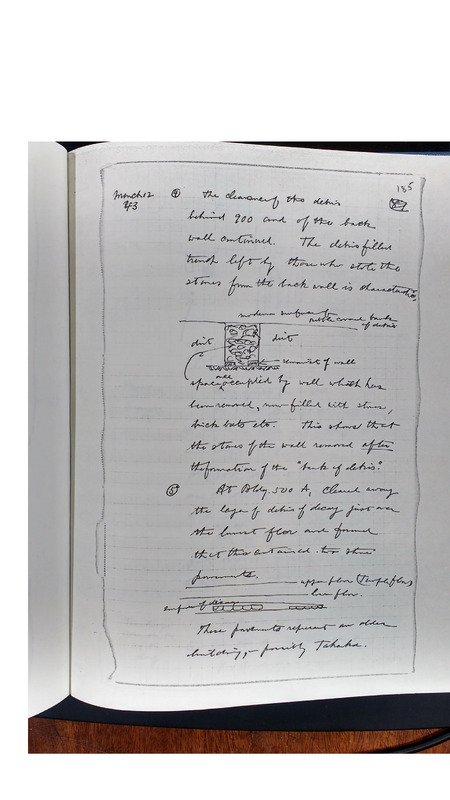 185
March 12
43
④ The clearance of the debris
behind 900 and of the back
wall continued. The debris filled
trench left by those who stole the
stones from the back wall is characteristic,
modern surface of
bank
of debris
dirt dirt
remains of wall
space once occupied by wall which has
been removed, now filled with stones,
brick bats etc. This shows that
the stones of the wall removed after
the formation of the "bank of debris."
⑤ At Bldg. 500 A, cleared away
the layer of debris of decay just over
the lowest floor and found
that this contained two stone
pavements.
upper floor
low floor.
These pavements represent an older
building, possibly Tahaka.